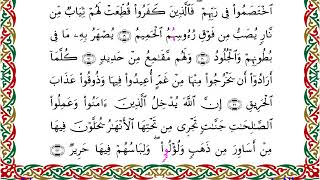 ٱخۡتَصَمُواْ فِي رَبِّهِمۡۖ فَٱلَّذِينَ كَفَرُواْ قُطِّعَتۡ لَهُمۡ ثِيَابٞ مِّن
نَّارٖ يُصَبُّ مِن فَوۡقِ رُءُوسِهِمُ ٱلۡحَمِيمُ ١٩ يُصۡهَرُ بِهِۦ مَا فِي
بُطُونِهِمۡ وَٱلۡجُلُودُ ٢٠ وَلَهُم مَّقَٰمِعُ مِنۡ حَدِيدٖ ٢١ كُلَّمَآ
أَرَادُوٓاْ أَن يَخۡرُجُواْ مِنۡهَا مِنۡ غَمٍّ أُعِيدُواْ فِيهَا وَذُوقُواْ عَذَابَ
ٱلۡحَرِيقِ ٢٢ إِنَّ ٱللَّهَ يُدۡخِلُ ٱلَّذِينَ ءَامَنُواْ وَعَمِلُواْ
ٱلصَّٰلِحَٰتِ جَنَّٰتٖ تَجۡرِي مِن تَحۡتِهَا ٱلۡأَنۡهَٰرُ يُحَلَّوۡنَ فِيهَا
مِنۡ أَسَاوِرَ مِن ذَهَبٖ وَلُؤۡلُؤٗاۖ وَلِبَاسُهُمۡ فِيهَا حَرِيرٞ ٢٣